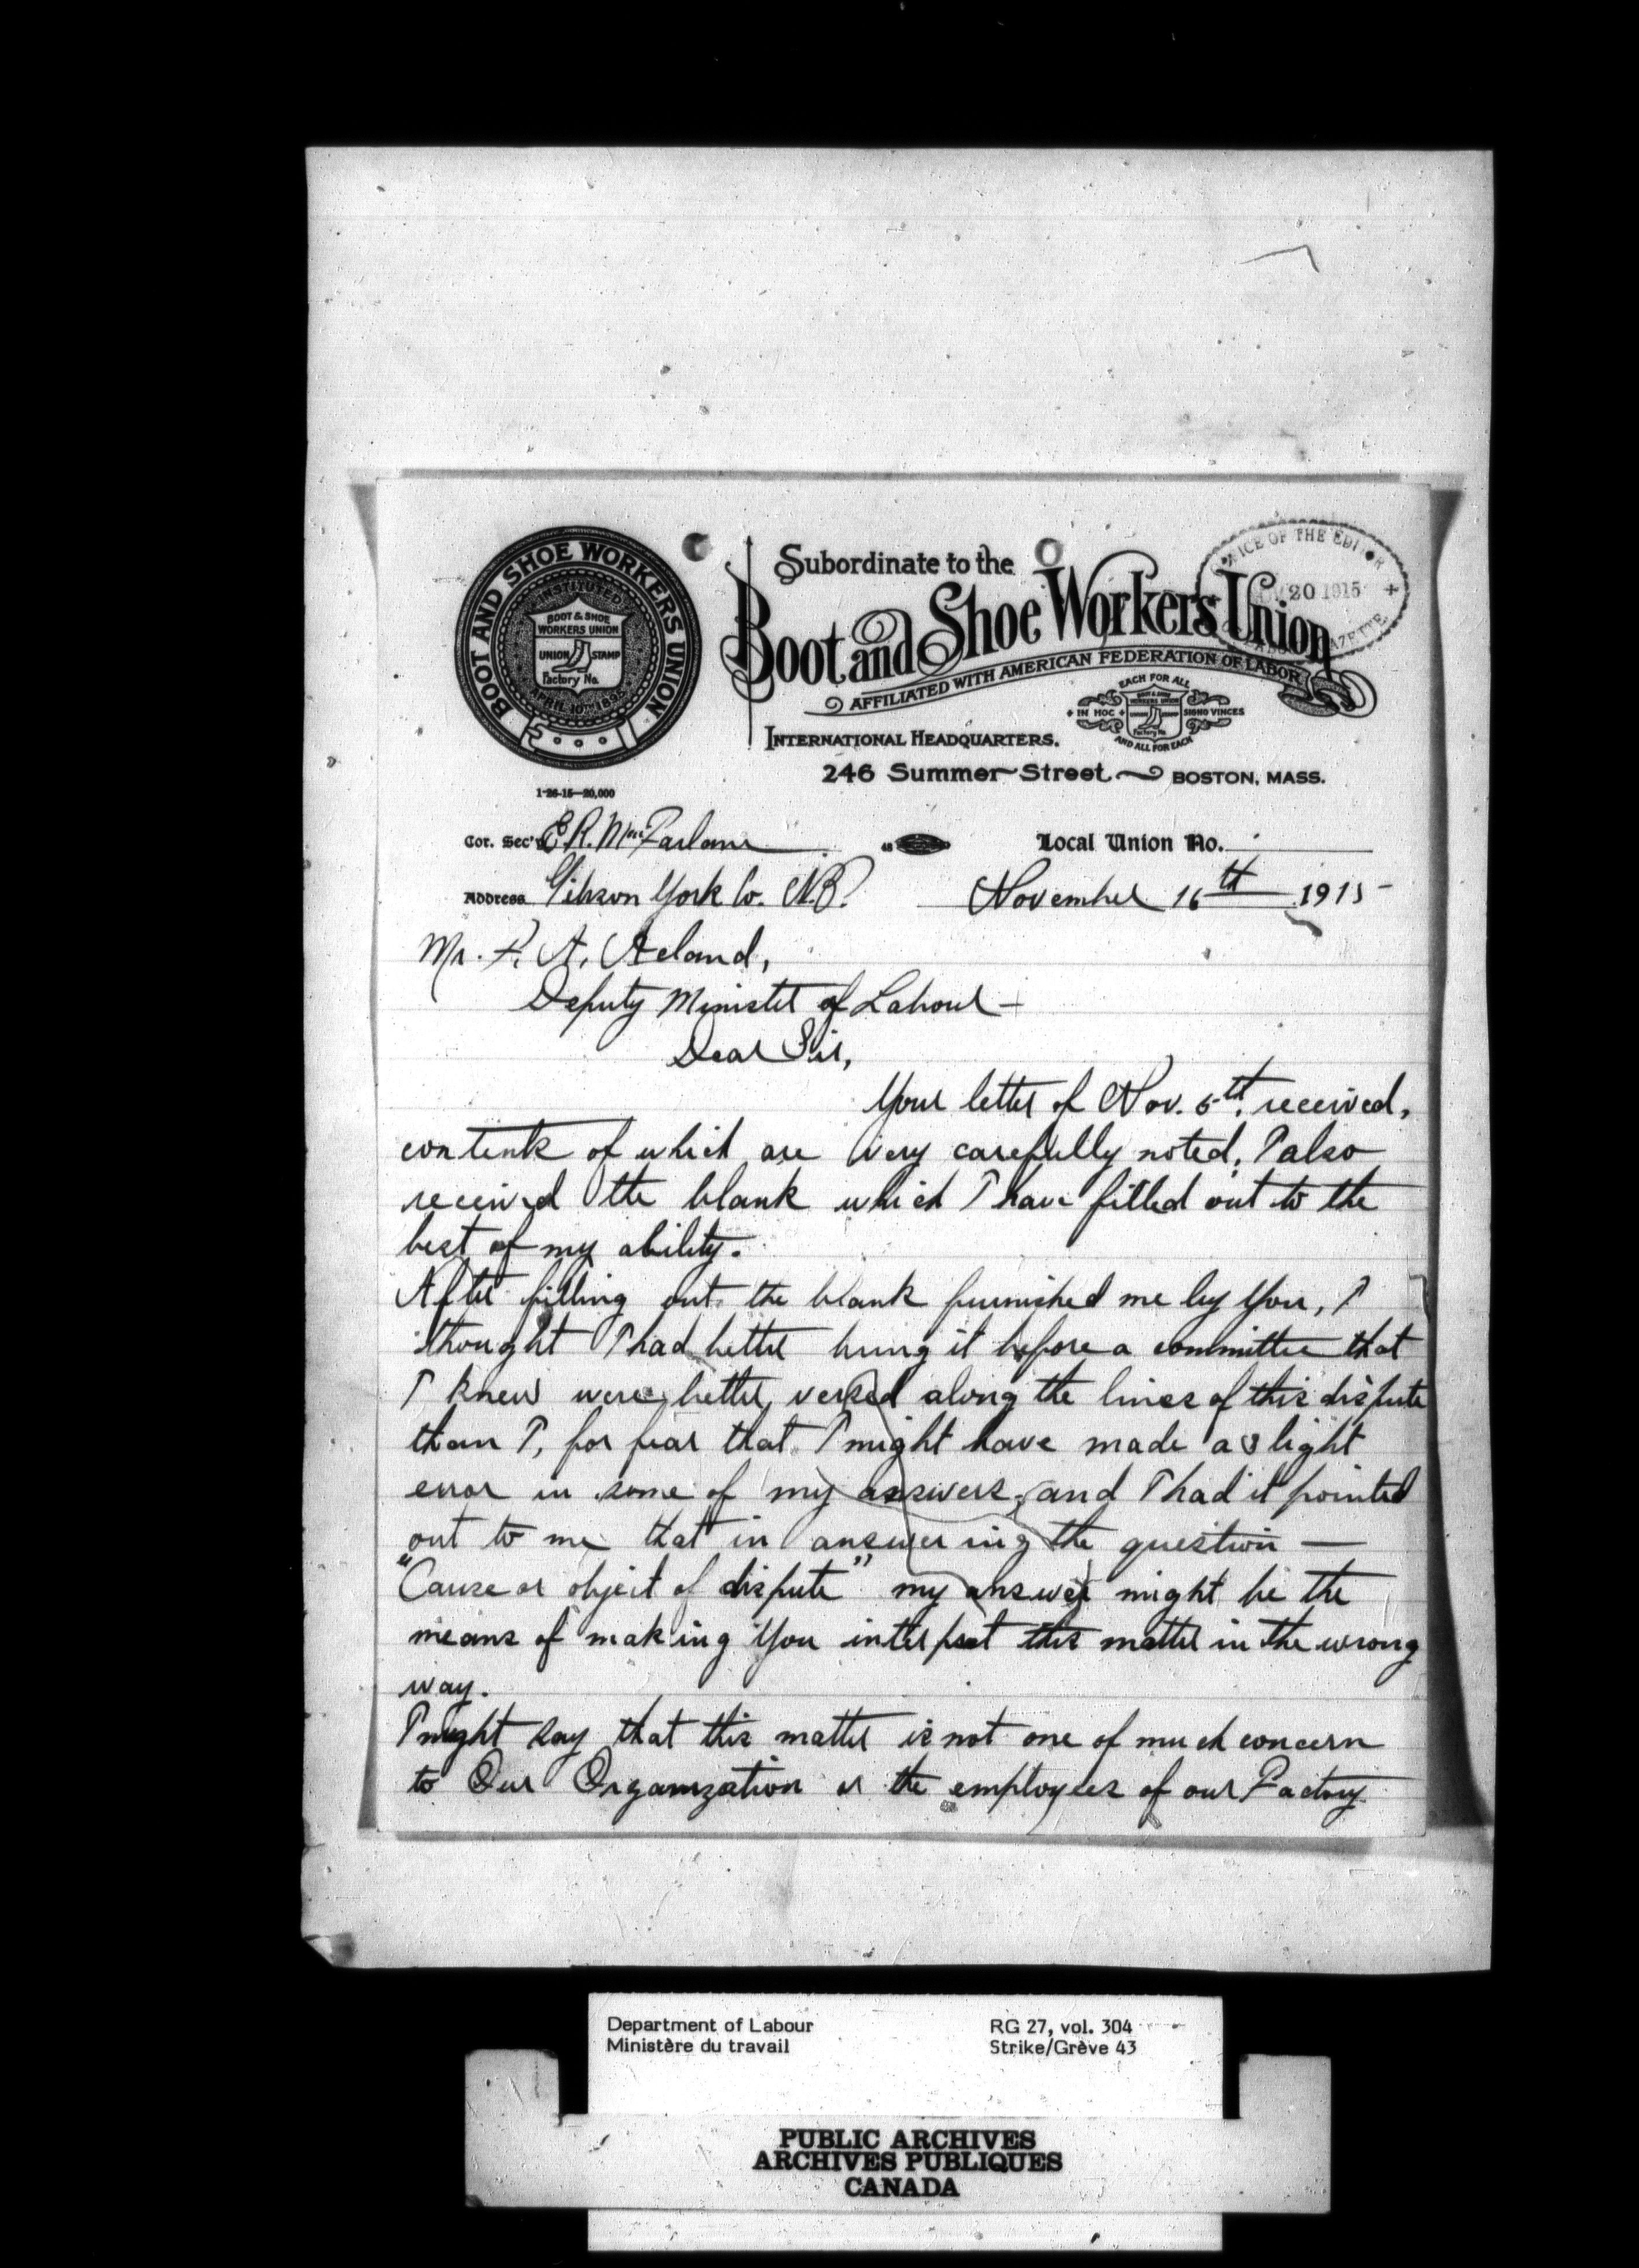 BOOT AND SHOE WORKERS UNION
INSTITUTED
BOOT & SHOE
WORKERS UNION
UNION STAMP
Factory No.
APRIL 10TH 1895
1-26-15—20,000
Subordinate to the
Boot and Shoe Workers Union
AFFILIATED WITH AMERICAN FEDERATION OF LABOR
OFFICE OF THE EDITOR
20 1915
GAZETTE
EACH FOR ALL
BOOT & SHOE
WORKERS UNION
IN HOC SIGNO VINCES
Factory No.
AND ALL FOR EACH
INTERNATIONAL HEADQUARTERS.
246 Summer Street BOSTON, MASS.
Cor. Sec'y E. R. MacFarlane Local Union No.
Address Gibson York Co. N.B. November 16th 1915
Mr. F. A. Acland,
Deputy Minister of Labour —
Dear Sir,
Your letter of Nov. 5th. received,
contents of which are very carefully noted, I also
received the blank which I have filled out to the
best of my ability.
After filling out the blank furnished me by You, I
thought I had better bring it before a committee that
I knew were better versed along the lines of this dispute
than I, for fear that I might have made a slight
error in some of my answers, and I had it pointed
out to me that in answering the question —
"Cause or object of dispute" my answer might be the
means of making You interpret this matter in the wrong
way.
I might say that this matter is not one of much concern
to Our Organization or the employees of our Factory
Department of Labour
Ministère du travail
RG 27, vol. 304
Strike/Grève 43
PUBLIC ARCHIVES
ARCHIVES PUBLIQUES
CANADA